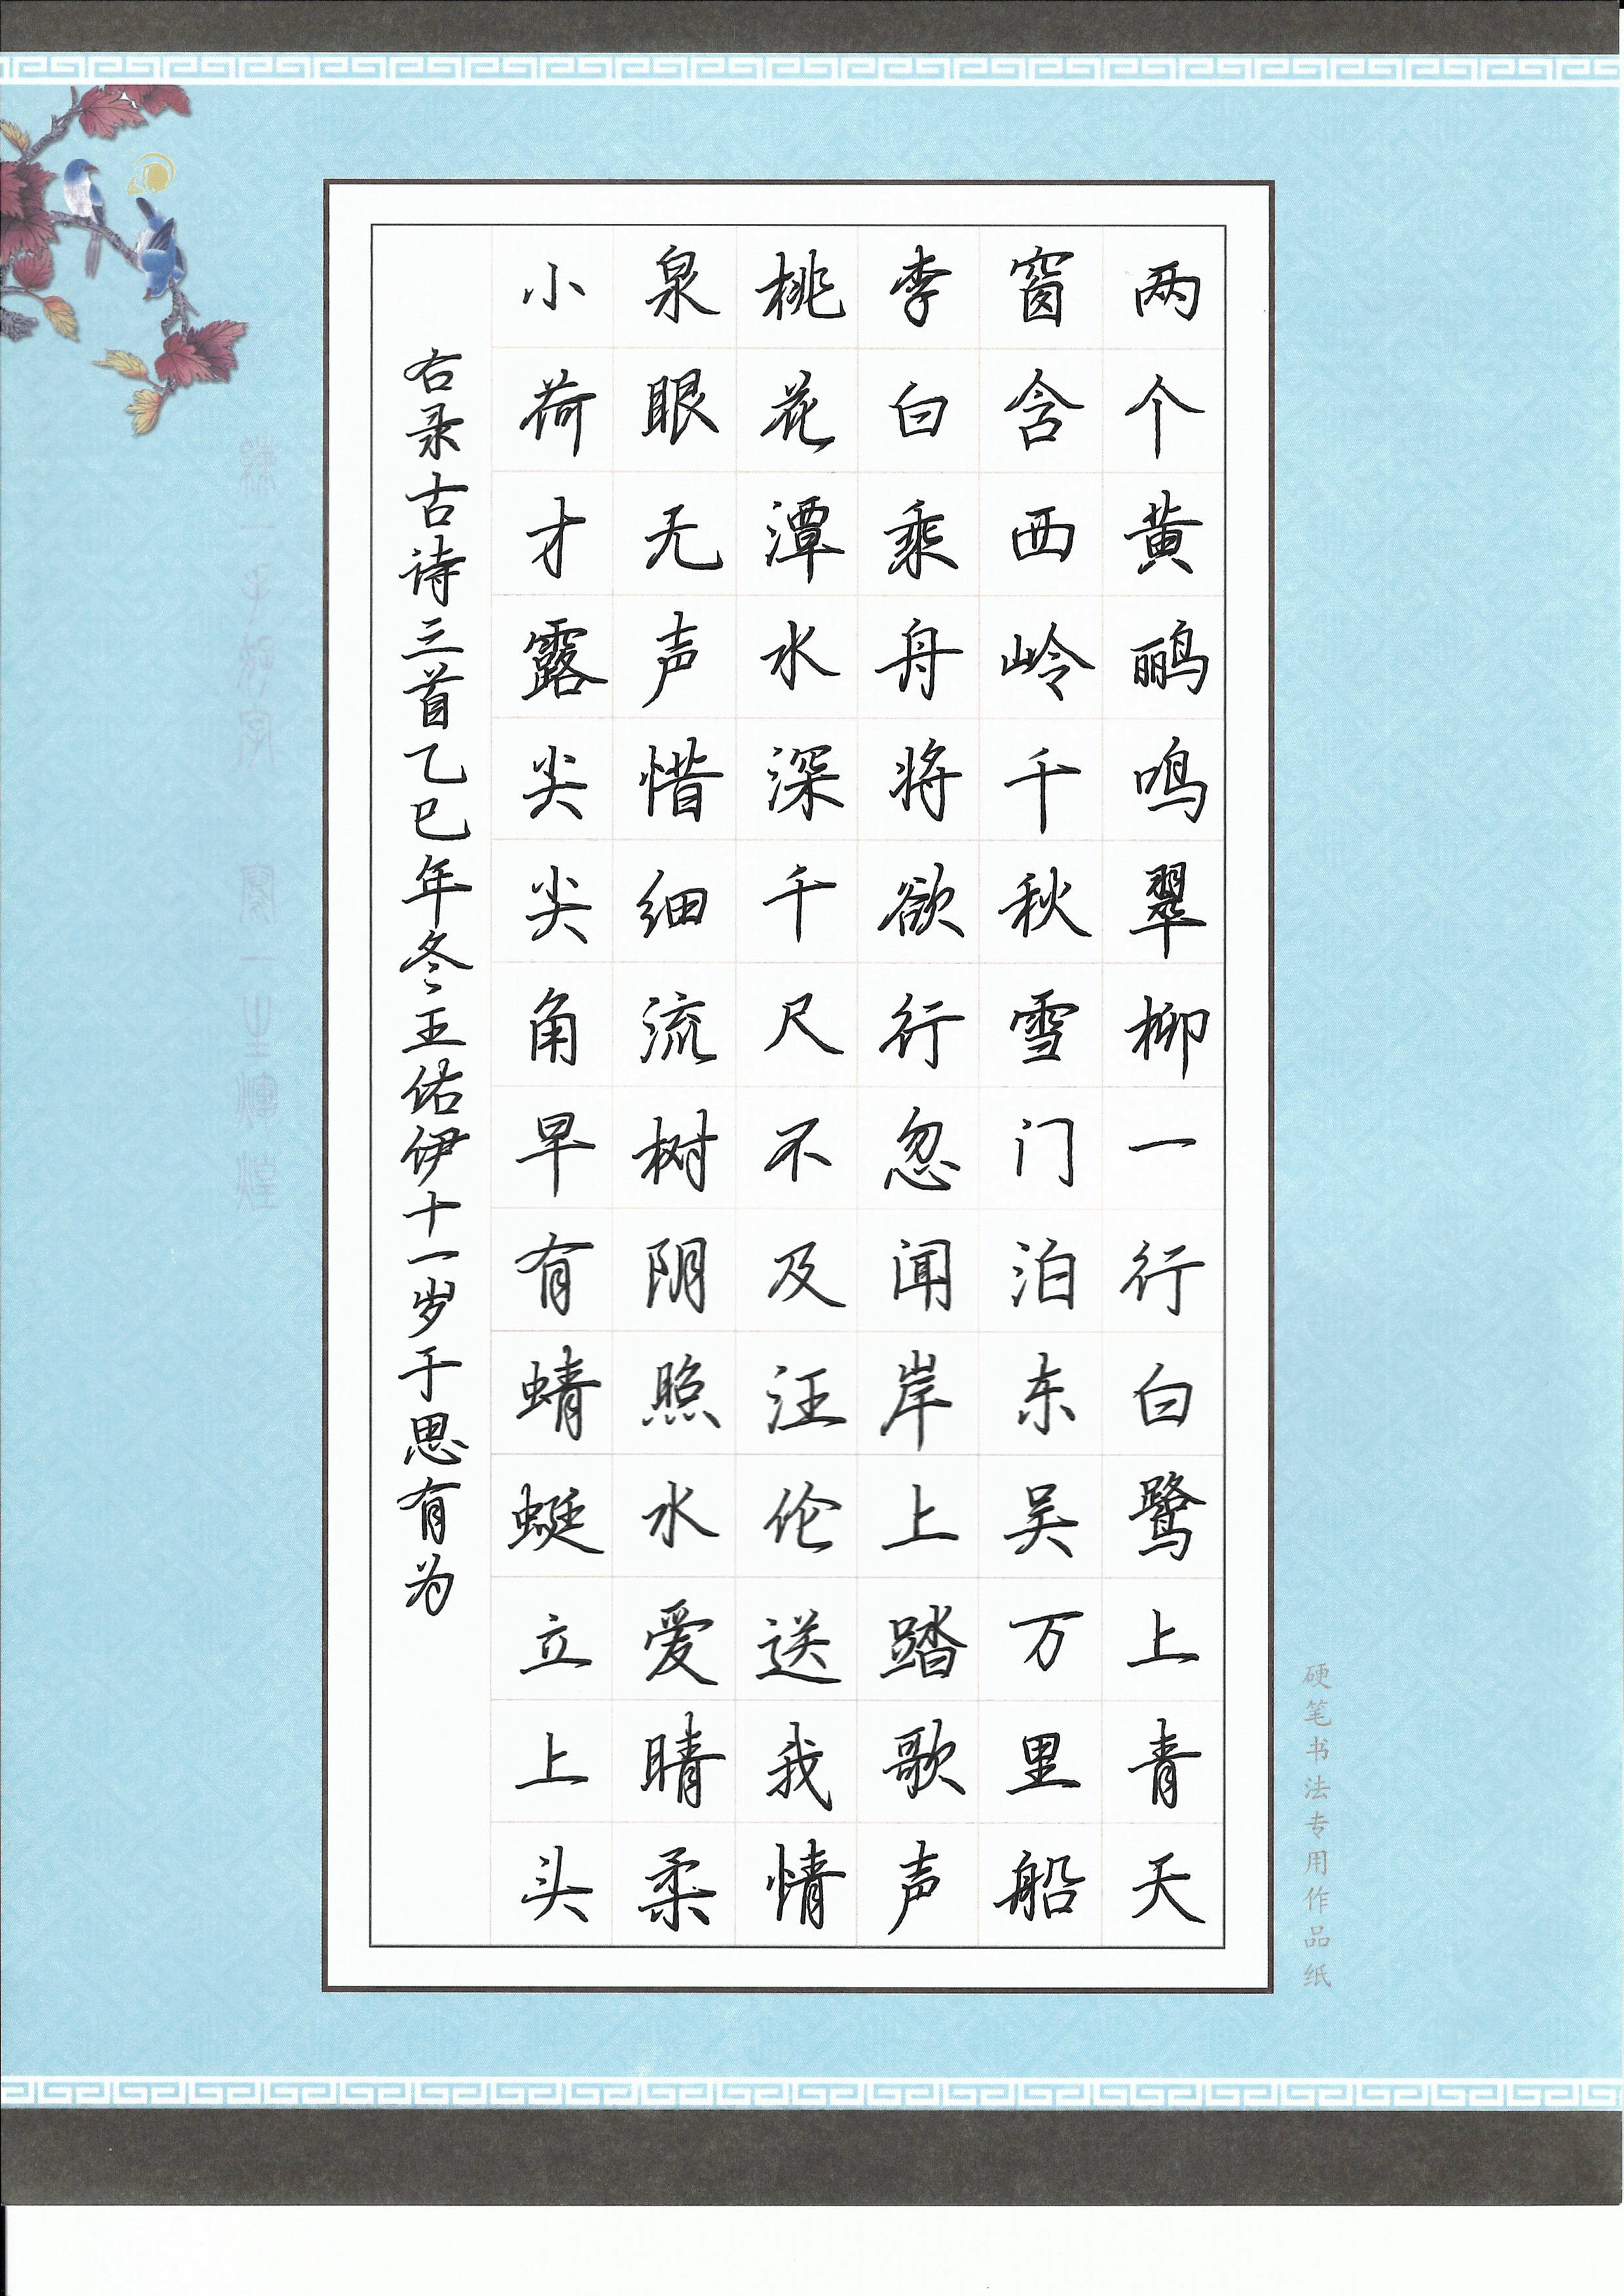 两个黄鹂鸣翠柳一行白鹭上青天
窗含西岭千秋雪门泊东吴万里船
李白乘舟将欲行忽闻岸上踏歌声
桃花潭水深千尺不及汪伦送我情
泉眼无声惜细流树阴照水爱晴柔
小荷才露尖尖角早有蜻蜓立上头
右录古诗三首乙巳年冬王佑伊十一岁于思有为
硬笔书法专用作品纸